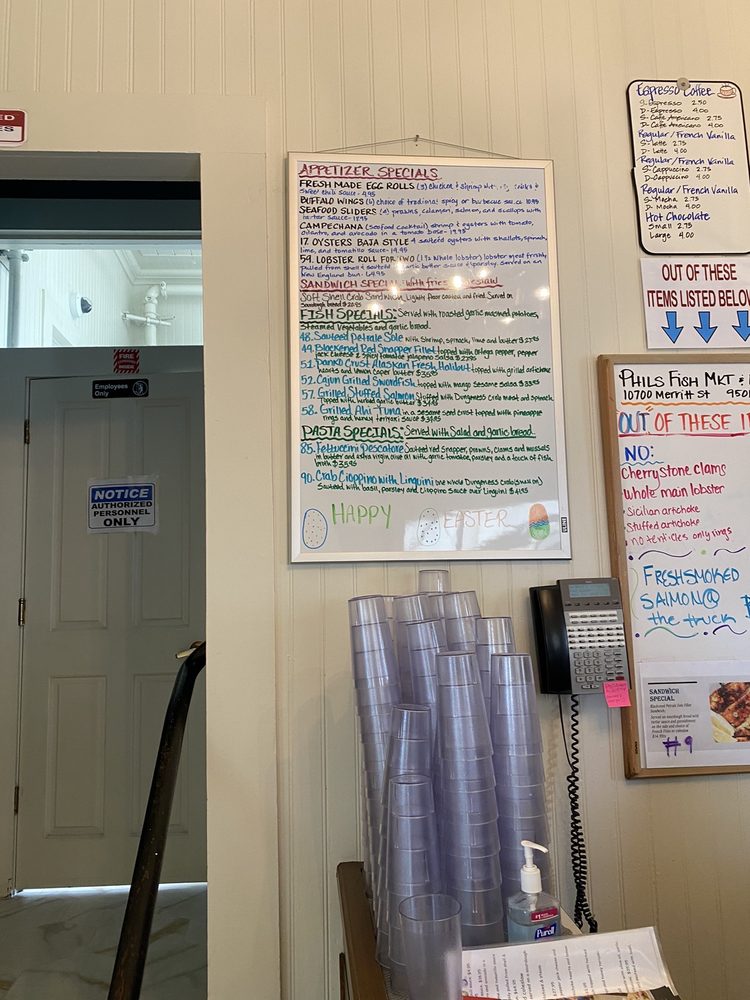 APPETIZER SPECIALS
FRESH MADE EGG ROLLS (3) chicken & shrimp
sweet chili sauce - 
BUFFALO WINGS (6) choice of traditional spicy or barbecue sauce 10.95
SEAFOOD SLIDERS (4) prawns, calamari, salmon, and scallops with
tartar sauce
CAMPECHANA (seafood cocktail) shrimp & oysters with tomato,
cilantro, and avocado in a tomato base
17. OYSTERS BAJA STYLE 4 sautéed oysters with shallots, spinach,
lime, and tomatillo sauce
54. LOBSTER ROLL FOR TWO (1½ whole lobster) lobster meat freshly
pulled from shell & sautéed garlic butter sauce & parsley. Served on an
New England bun
SANDWICH SPECIAL: with fries & coleslaw
Soft Shell Crab Sandwich Lightly floor coated and fried. Served on
Sourdough bread
FISH SPECIALS: Served with roasted garlic mashed potatoes,
Steamed Vegetables and garlic bread.
48. Sauteed Petrale Sole with Shrimp, spinach, lime and butter
49. Blackened Red Snapper Fillet topped with ortega pepper, pepper
jack cheese & spicy tomatoe jalapeno salsa
51. Panko Crust Alaskan Fresh Halibut topped with grilled artichoke
hearts and lemon caper butter
52. Cajun Grilled Swordfish topped with mango Sesame salsa
57. Grilled Stuffed Salmon stuffed with Dungeness crab meat and spinach
topped with herbed garlic butter
58. Grilled Ahi Tuna in a sesame seed crust topped with pineapple
rings and honey teriyaki sauce
PASTA SPECIALS: Served with Salad and garlic bread
85. Fettuccini Pescatore Sauteed red snapper, prawns, clams and mussels
in butter and extra virgin olive oil with garlic tomatoe, parsley and a touch of fish
broth
90. Crab Cioppino with Linguini one whole Dungeness crab (in shell)
Sauteed with basil, parsley and Cioppino Sauce over Linguini
HAPPY EASTER
Espresso Coffee
S- Espresso 2.50
D- Espresso 4.00
S- Café Americano 2.75
D- Café Americano 4.00
Regular/French Vanilla
S- Latte 2.75
D- Latte 4.00
Regular/French Vanilla
S- Cappuccino 2.75
D- Cappuccino 4.00
Regular/French Vanilla
S- Mocha 2.75
D- Mocha 4.00
Hot Chocolate
Small 2.75
Large 4.00
OUT OF THESE
ITEMS LISTED BELOW
PHILS FISH MKT &
10700 Merritt St 950
OUT OF THESE
NO:
Cherrystone clams
whole main lobster
• Sicilian artichoke
• Stuffed artichoke
• no tenticles only rings
FRESH SMOKED
SALMON @
the truck
SANDWICH
SPECIAL
#9
FIRE
INSIDE
Employees
Only
NOTICE
AUTHORIZED
PERSONNEL
ONLY
Purell